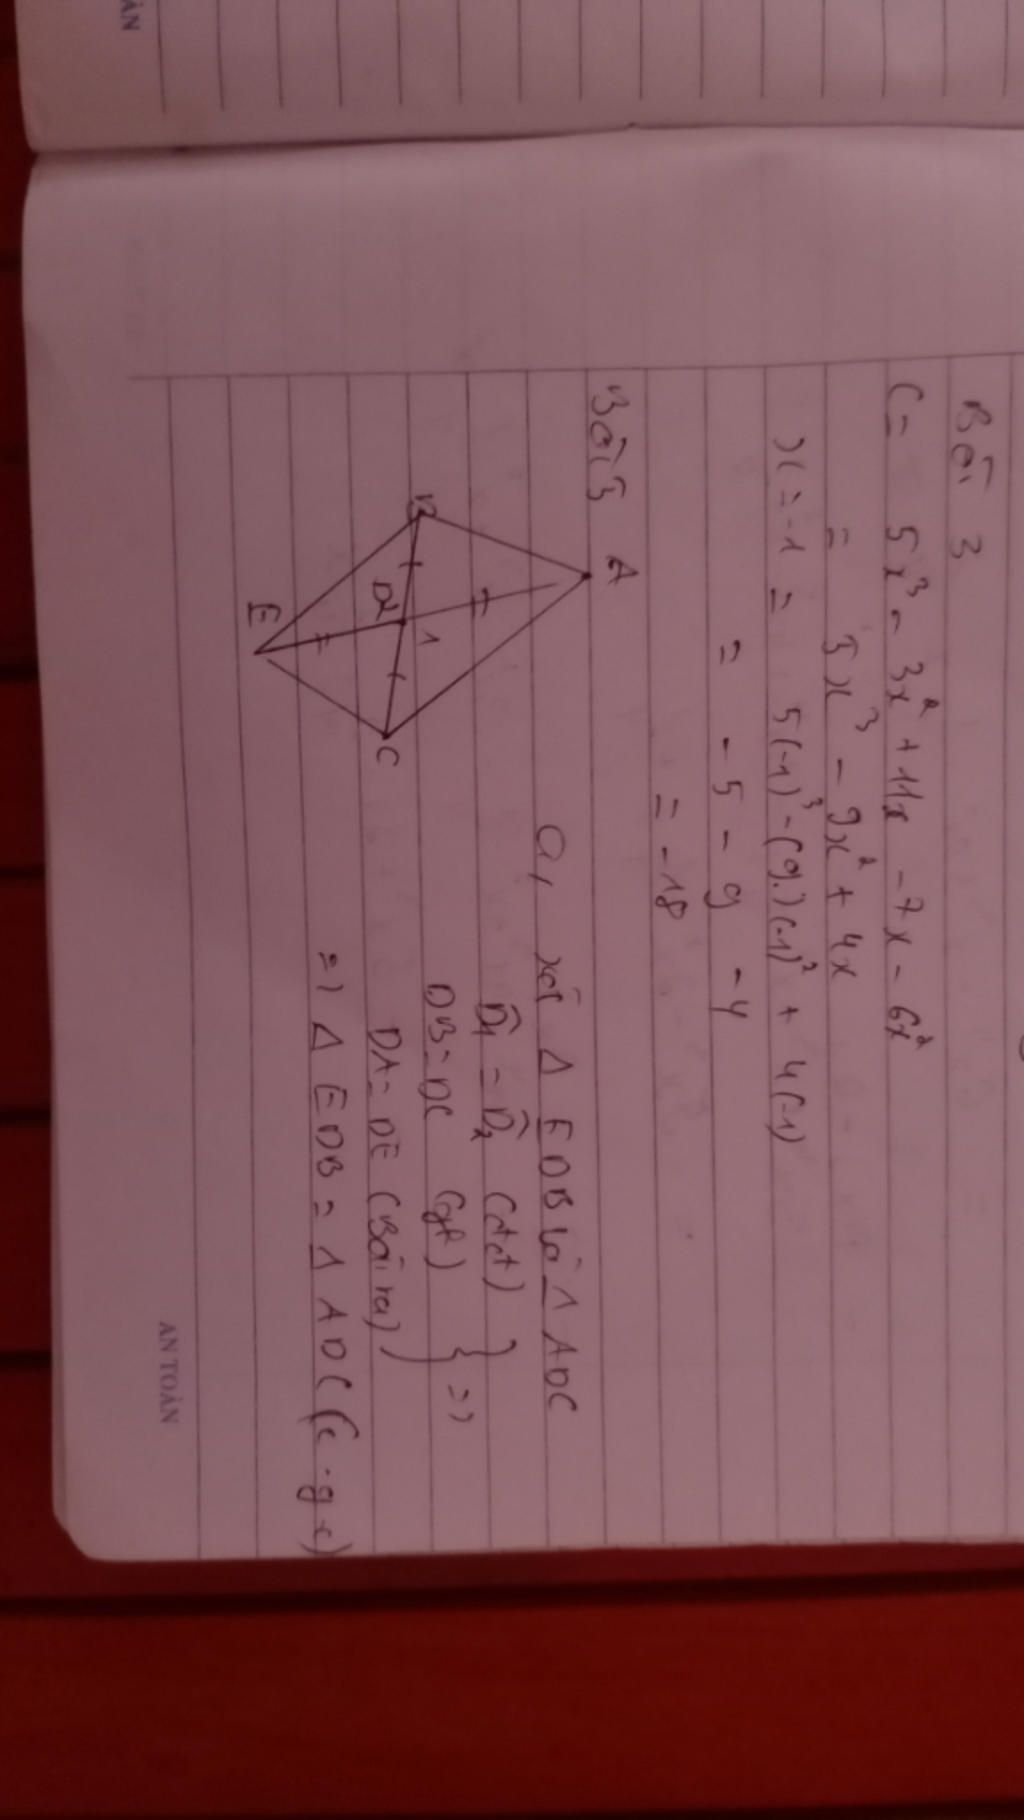 Bài 3
C= 5x³ - 3x² + 11x - 7x - 6x²
= 5x³ - 9x² + 4x
x = -1 = 5(-1)³ - (9.)(-1)² + 4(-1)
= -5 - 9 - 4
= -18
Bài 5
A
B
D
1
2
C
E
a, xét Δ EDB và Δ ADC
D̂1 = D̂2 (đđ)
DB = DC (gt) } =>
DA = DE (Bài ra)
=> Δ EDB = Δ ADC (c.g.c)
AN TOÀN
ÀN